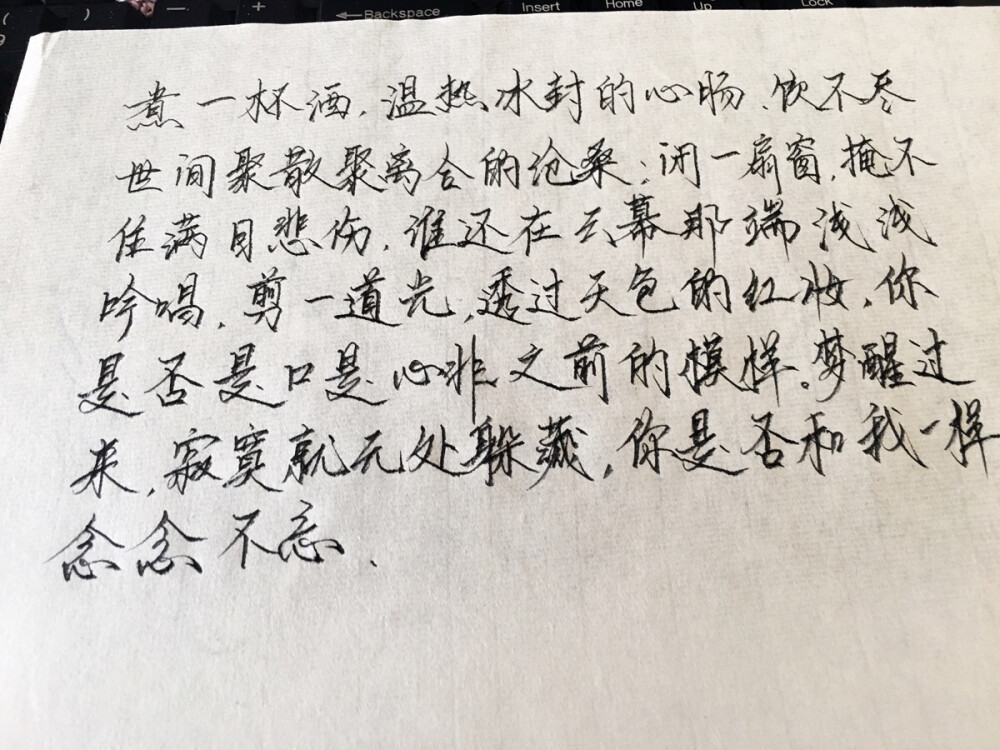 ( ) — + ←Backspace Insert Home Up Lock
9
煮一杯酒,温热冰封的心肠、饮不尽
世间聚散聚离合的沧桑;闭一扇窗,掩不
住满目悲伤,谁还在云幕那端浅浅
吟唱,剪一道光,透过天色的红妆,你
是否是口是心非之前的模样。梦醒过
来,寂寞就无处躲藏,你是否和我一样
念念不忘、